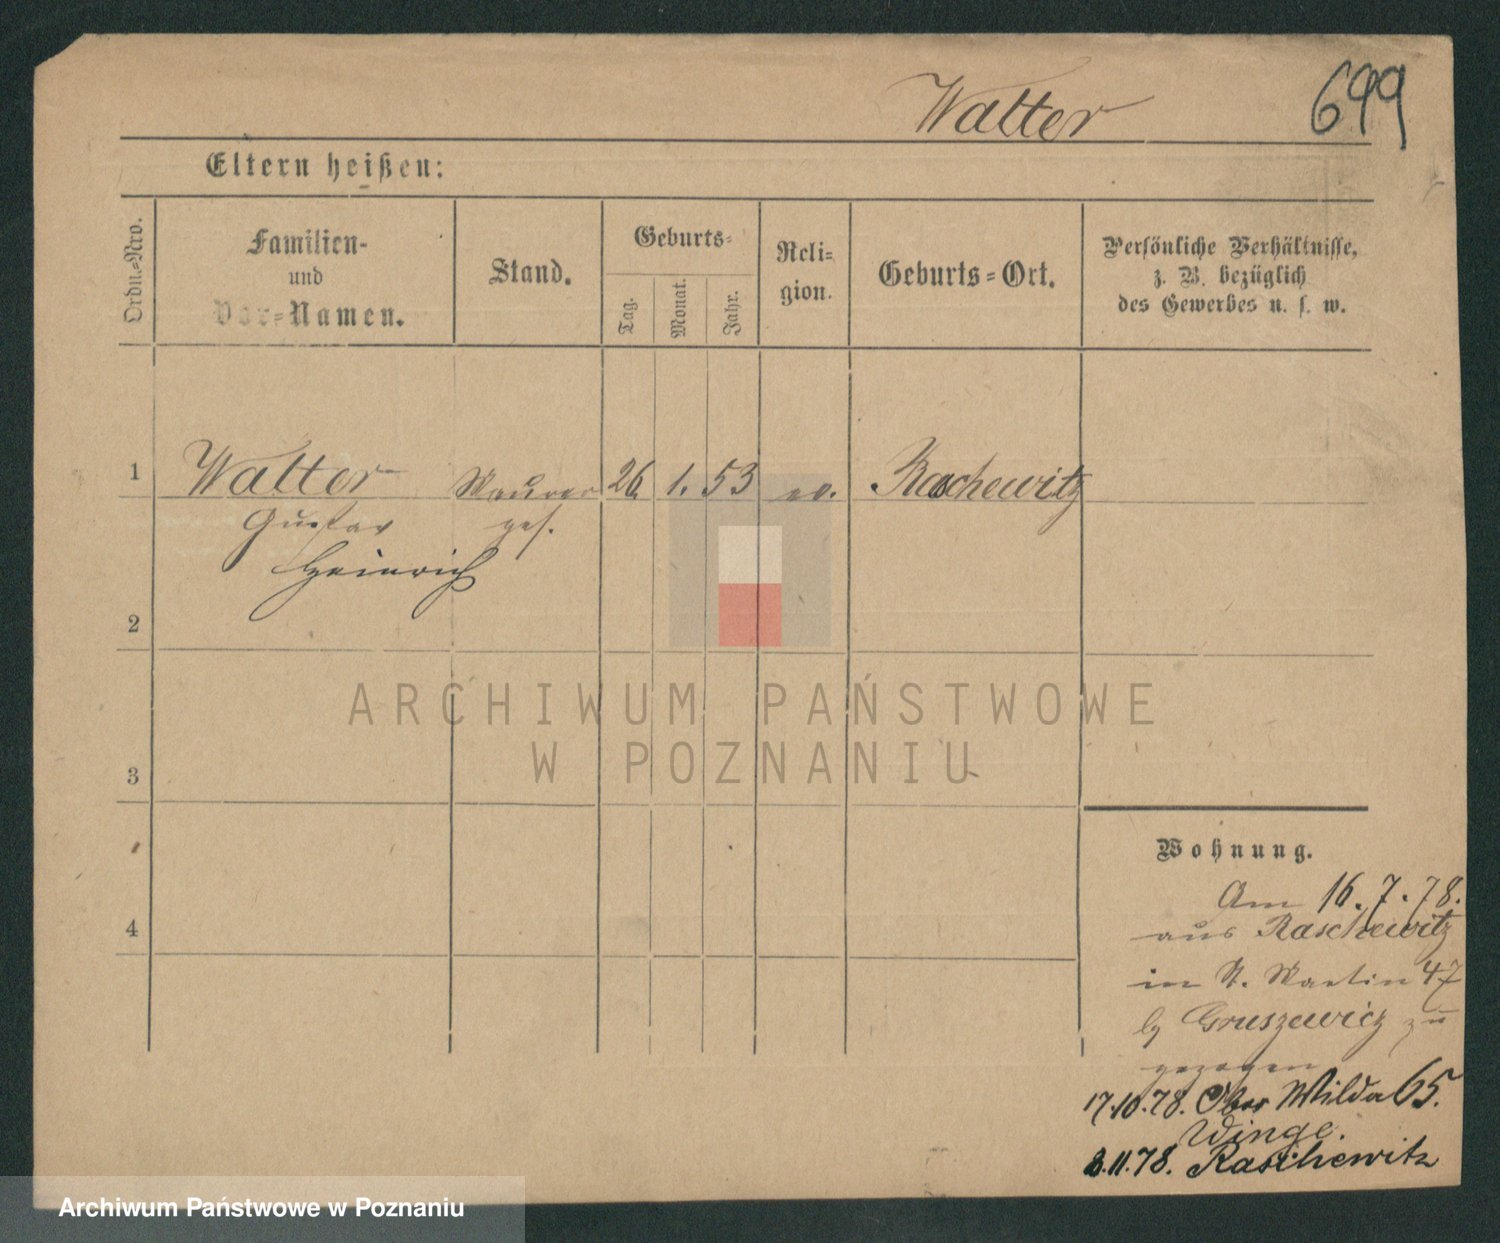 Walter 699
Eltern heißen:
Ordn.=Nro.
Familien-
und
Vor=Namen.
Stand.
Geburts=
Tag.
Monat.
Jahr.
Reli=
gion.
Geburts=Ort.
Persönliche Verhältnisse,
z. B. bezüglich
des Gewerbes u. s. w.
1 Walter Maurer 26 1. 53 ev. Raschewitz
Gustav ges.
Heinrich
2
3
4
Wohnung.
Am 16.7.78.
aus Raschewitz
in St. Martin 47
by Gruszewicz zu
gezogen
17.10.78. Ober Wilda 65.
Winge.
8.11.78. Raschewitz
ARCHIWUM PAŃSTWOWE
W POZNANIU
Archiwum Państwowe w Poznaniu